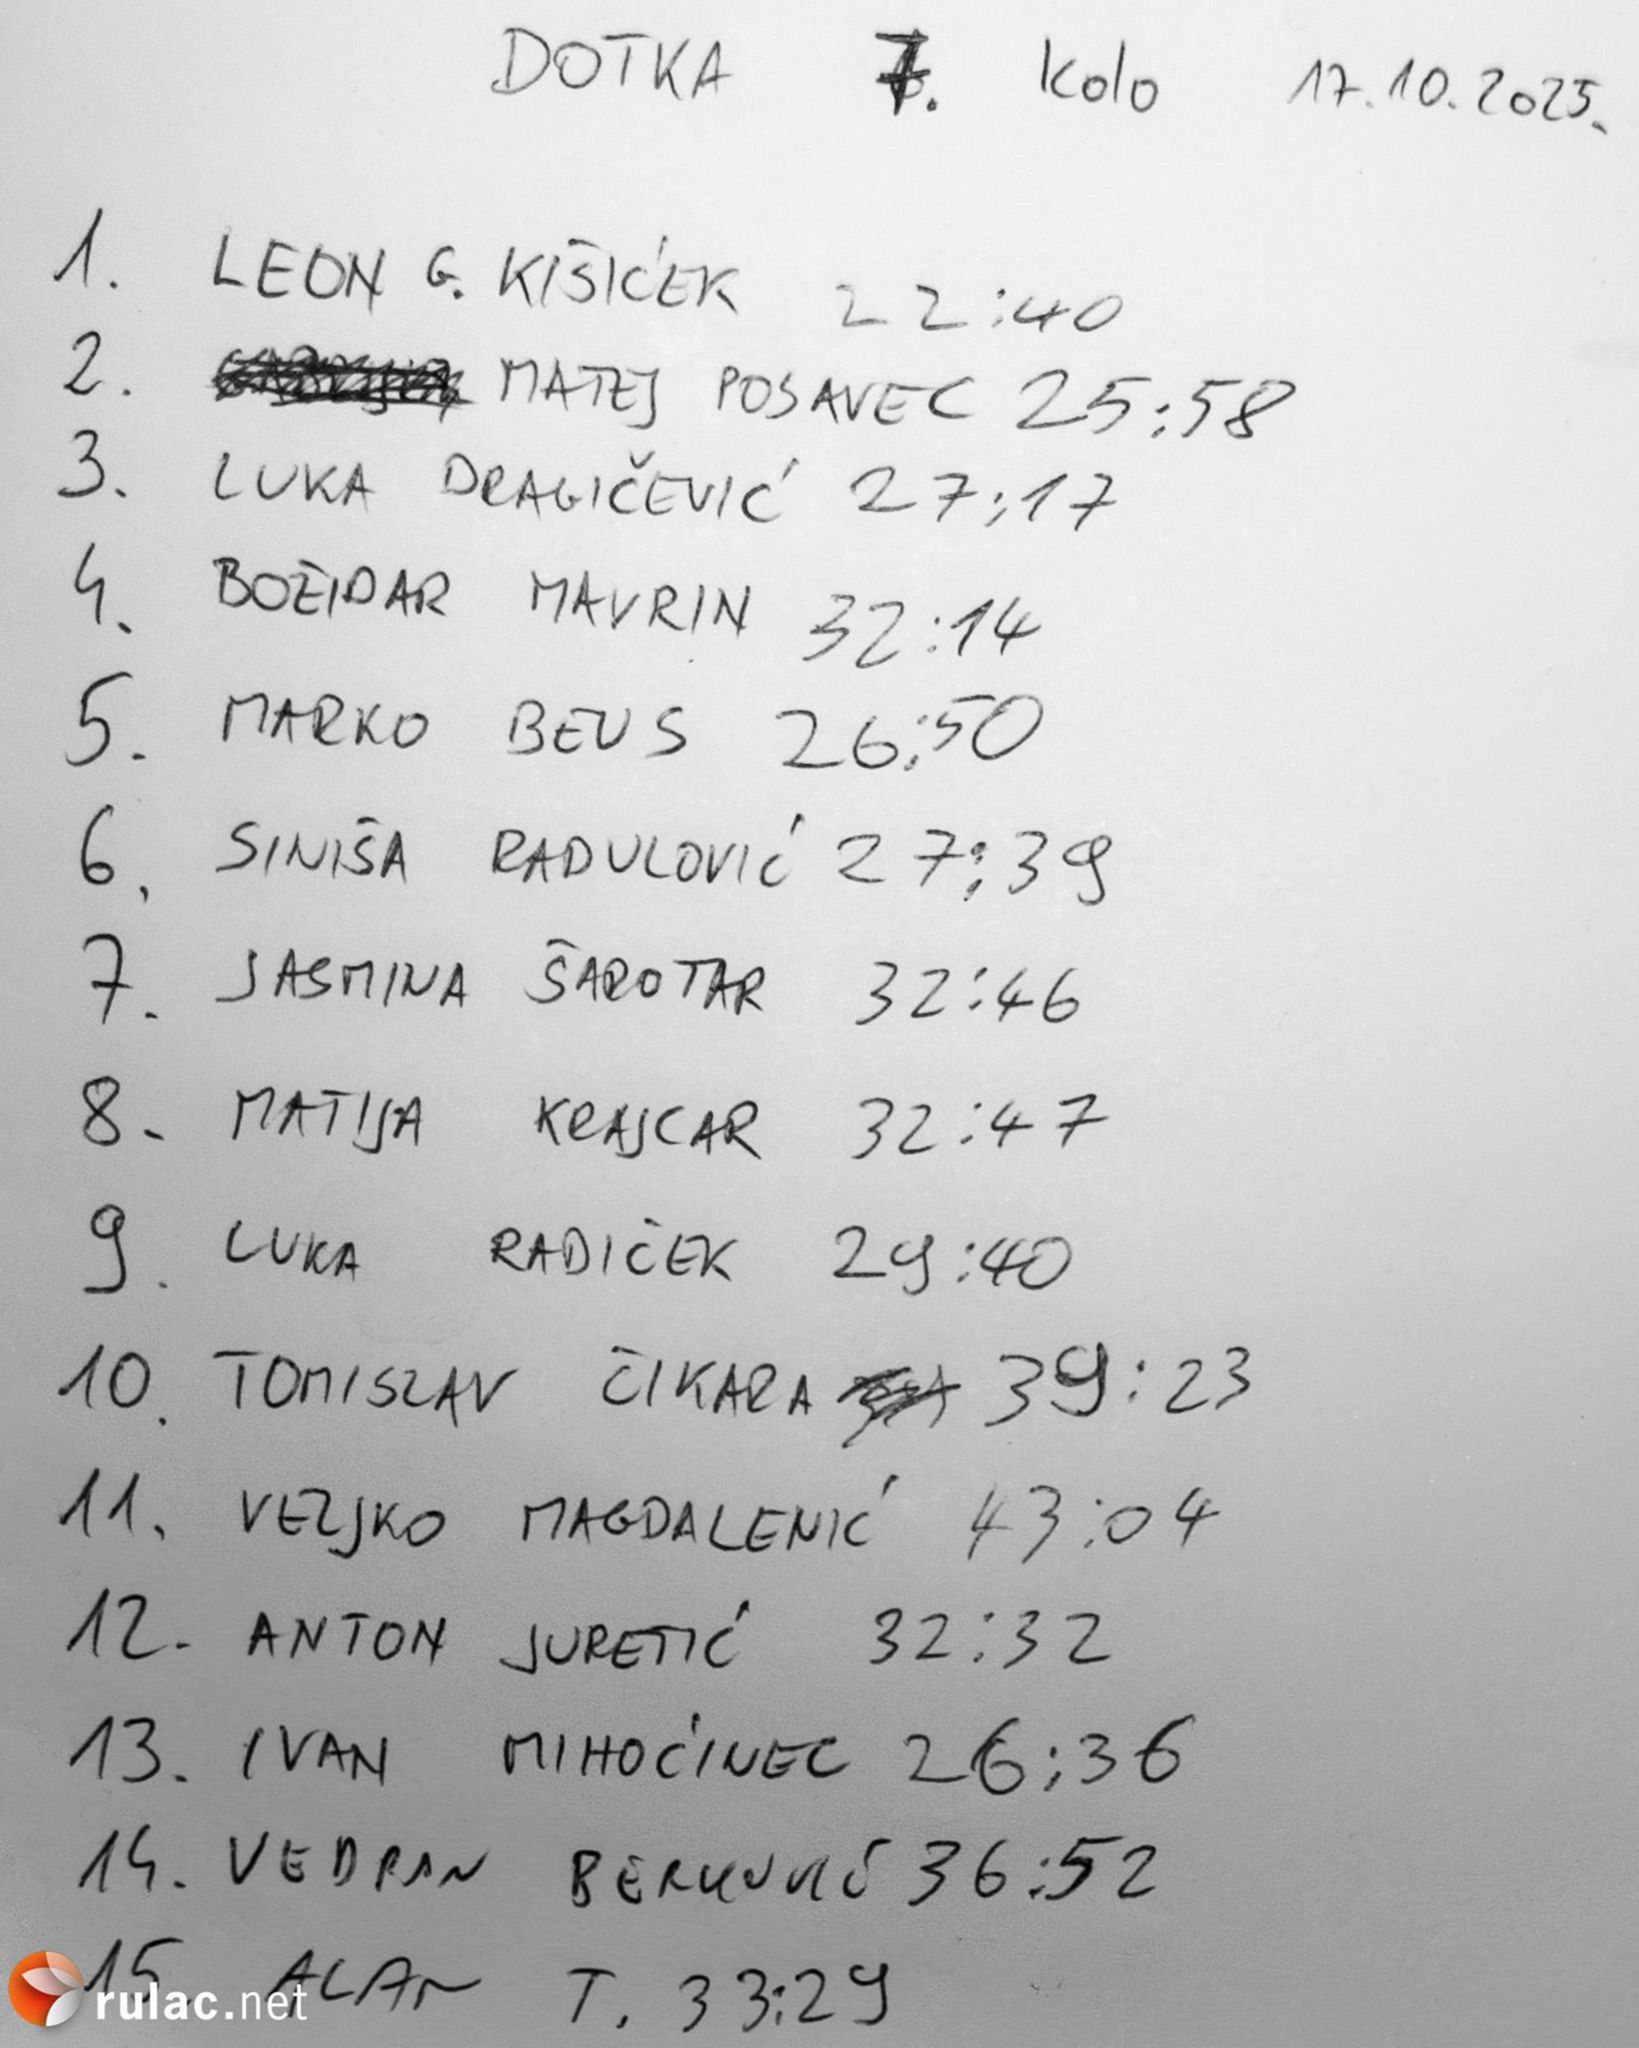 DOTKA 7. kolo 17.10.2025.
1. LEON G. KIŠIĆEK 22:40
2. MATEJ POSAVEC 25:58
3. LUKA DRAGIČEVIĆ 27:17
4. BOŽIDAR MAVRIN 32:14
5. MARKO BEUS 26:50
6. SINIŠA RADULOVIĆ 27:39
7. JASMINA ŠAROTAR 32:46
8. MATIJA KRAJCAR 32:47
9. LUKA RADIČEK 29:40
10. TOMISLAV ČIKARA 39:23
11. VELJKO MAGDALENIĆ 43:04
12. ANTON JURETIĆ 32:32
13. IVAN MIHOĆINEC 26:36
14. VEDRAN BERKOVIĆ 36:52
15. ALAN T. 33:29
rulac.net